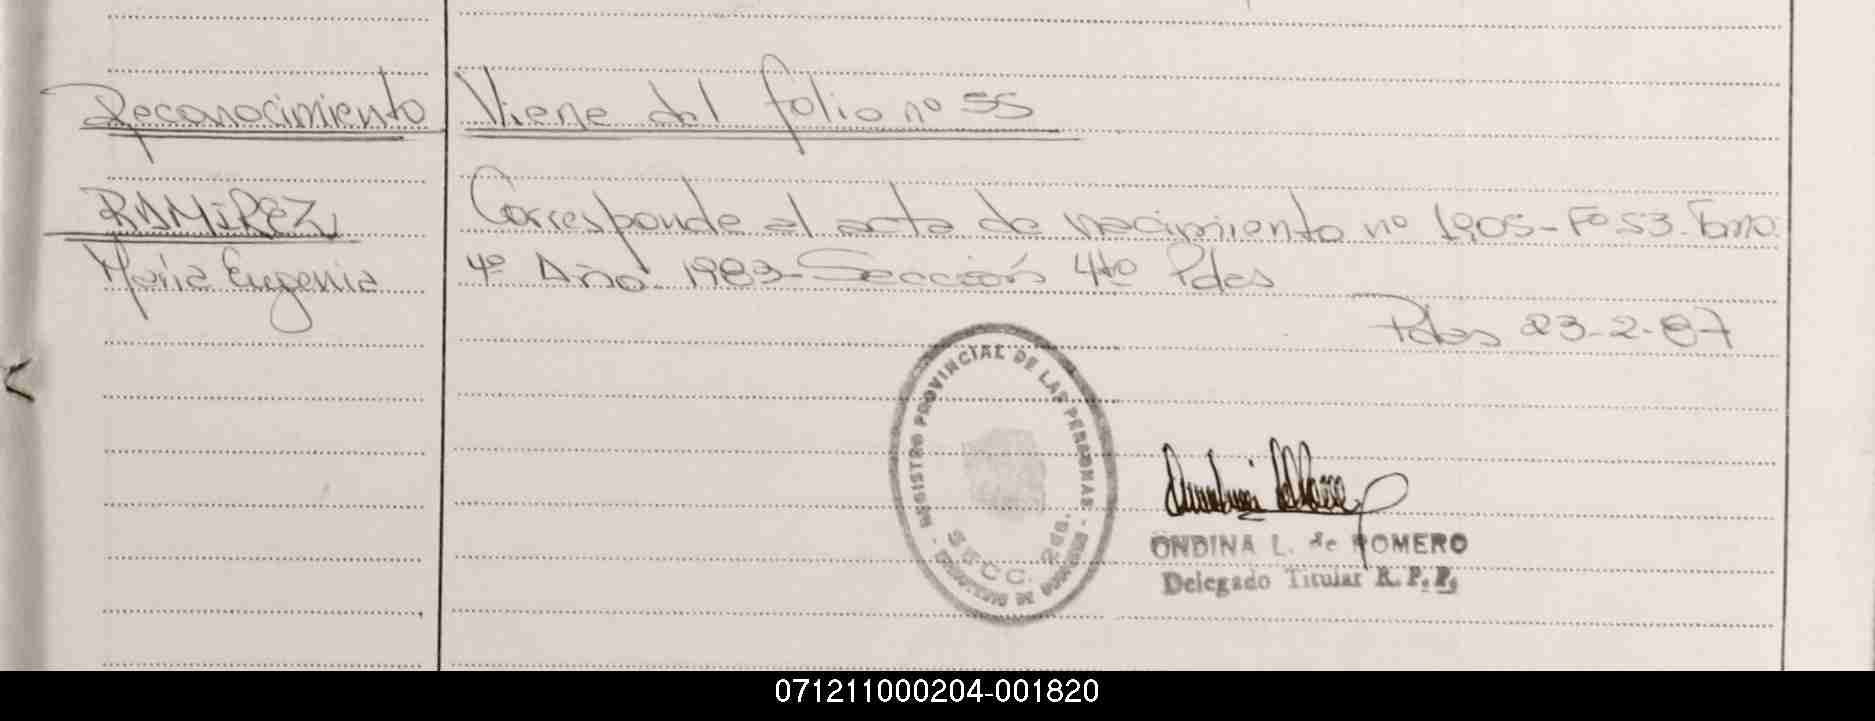 Reconocimiento
RAMIREZ
María Eugenia
Viene del folio nº 55
Corresponde al acta de nacimiento nº 1905-Fº53-Tomo
4º Año 1983-Sección 4to Pdas
Pdas 23-2-87
REGISTRO PROVINCIAL DE LAS PERSONAS -
SECC. 2da.
ONDINA L. de ROMERO
Delegado Titular R. P. P.
071211000204-001820